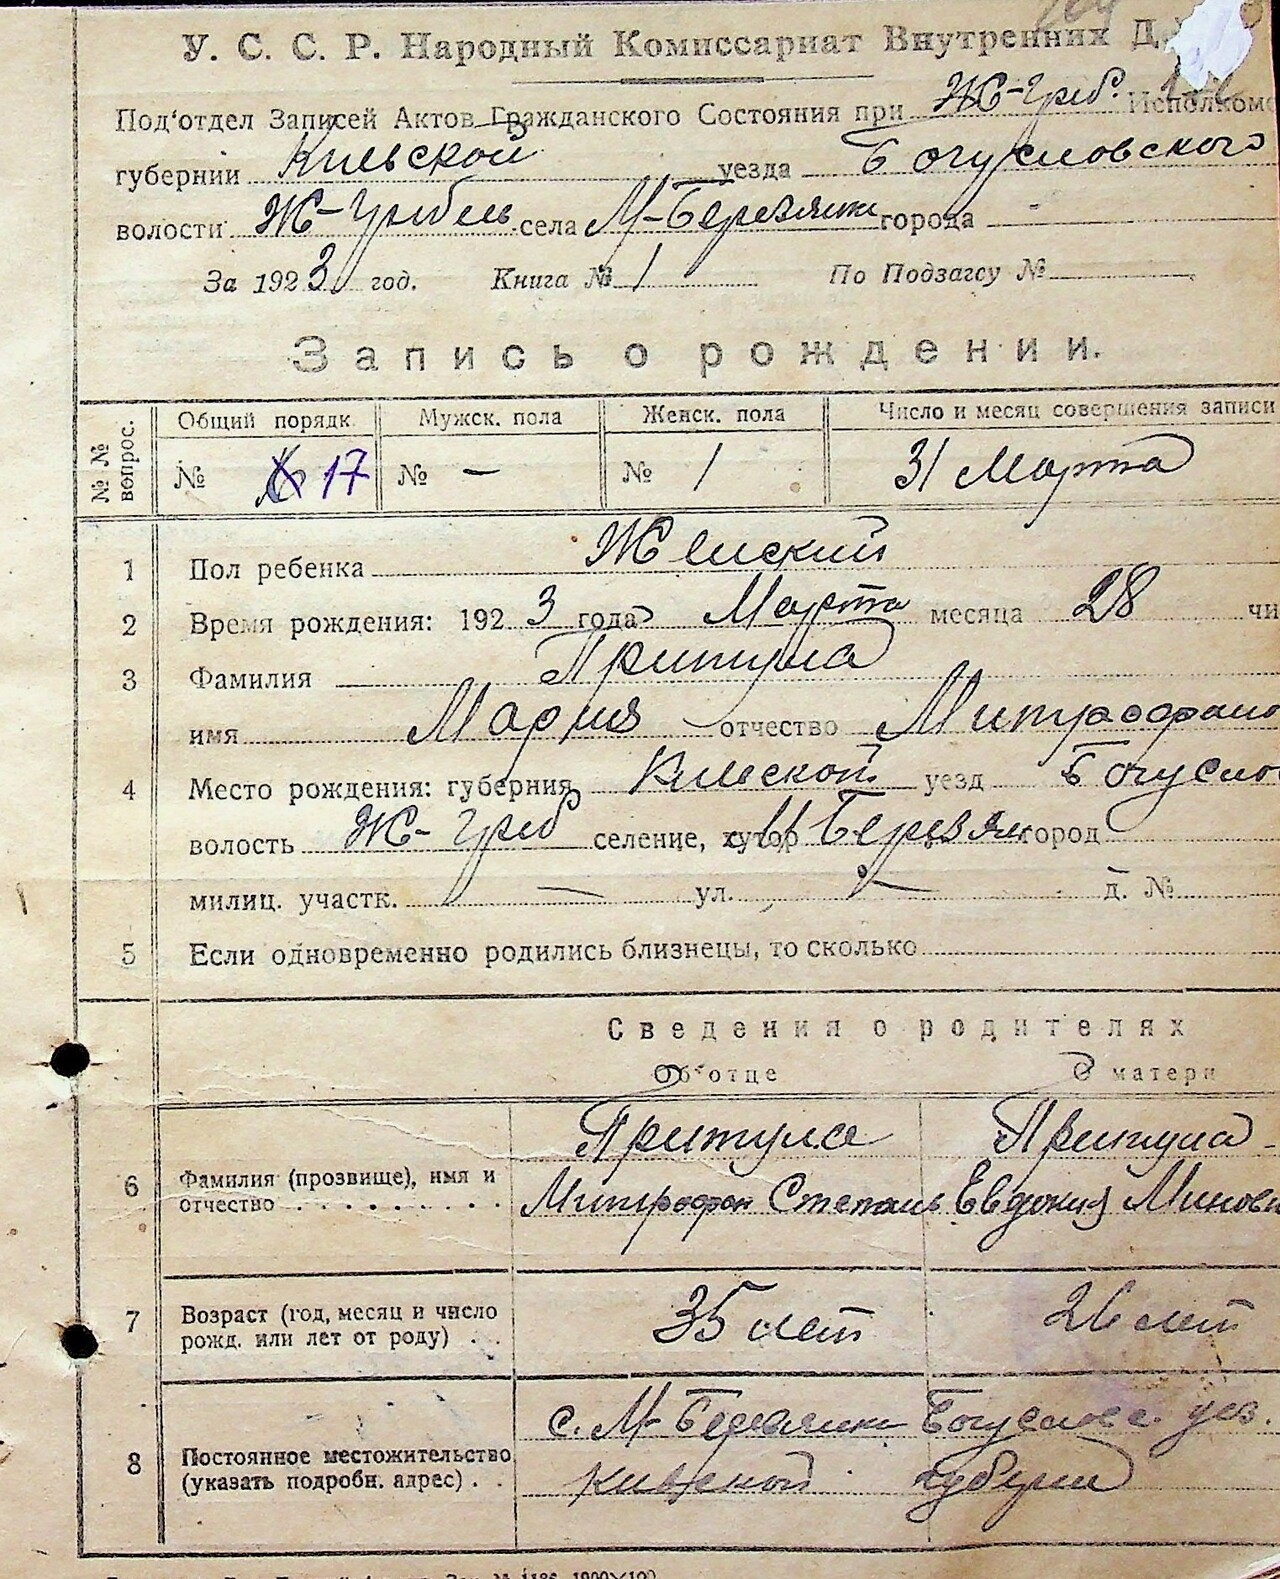 У. С. С. Р. Народный Комиссариат Внутренних
Под'отдел Записей Актов Гражданского Состояния при Ж-Греб. Исполком
губернии Киевской уезда Богуславского
волости Ж-Гребль села М-Березянки города -
За 1923 год. Книга № 1 По Подзагсу №
Запись о рождении.
№ № вопрос. Общий порядк. Мужск. пола Женск. пола Число и месяц совершения записи
№ 17 № — № 1 31 Марта
1 Пол ребенка Женский
2 Время рождения: 1923 года Марта месяца 28 чи
3 Фамилия Притула
имя Мария отчество Митрофано
4 Место рождения: губерния Киевской уезд Богусла
волость Ж-Греб селение, хутор М Березян город
милиц. участк. — ул. — д. №
5 Если одновременно родились близнецы, то сколько
Сведения о родителях
Об отце О матери
Притула Притула
6 Фамилия (прозвище), имя и
отчество . . . . . . . . . Митрофан Степань Евдокия Минов
7 Возраст (год, месяц и число
рожд. или лет от роду) . . 35 лет 26 лет
с. М-Березянки Богуславс. уез.
8 Постоянное местожительство
(указать подробн. адрес) . . Киевской губерни